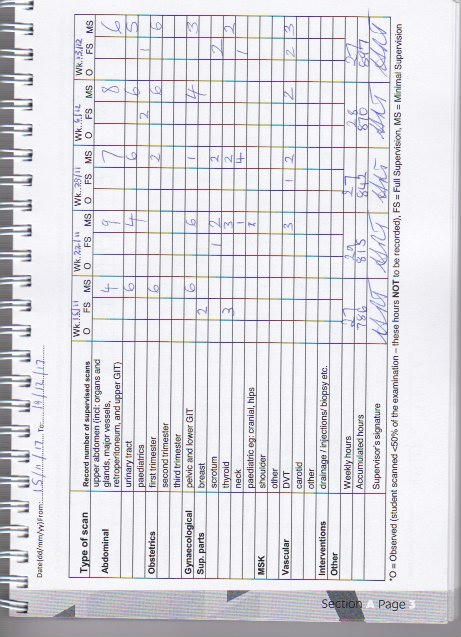 Date(dd/mm/yy)From: 15/11/17 To: 19/12/17
Type of scan Record number of supervised scans Wk. 15/11 Wk. 22/11 Wk. 29/11 Wk. 6/12 Wk. 13/12
O FS MS O FS MS O FS MS O FS MS O FS MS
Abdominal upper abdomen (incl: organs and
glands, major vessels,
retroperitoneum, and upper GIT) 4 9 7 8 6
urinary tract 6 4 6 6 5
paediatrics 2 1
Obstetrics first trimester 6 2 6 6
second trimester
third trimester
Gynaecological pelvic and lower GIT 6 6 1 4 3
Sup. parts breast 2
scrotum 1 2 2 2
thyroid 3 3 2 2
neck 1 4 1
paediatric eg: cranial, hips
MSK shoulder
other
Vascular DVT 3 1 2 2 2 3
carotid
other
Interventions drainage / injections/ biopsy etc.
Other
Weekly hours 27 29 27 28 27
Accumulated hours 786 815 842 870 897
Supervisor's signature
*O = Observed (student scanned <50% of the examination – these hours NOT to be recorded), FS = Full Supervision, MS = Minimal Supervision
Section A Page 3